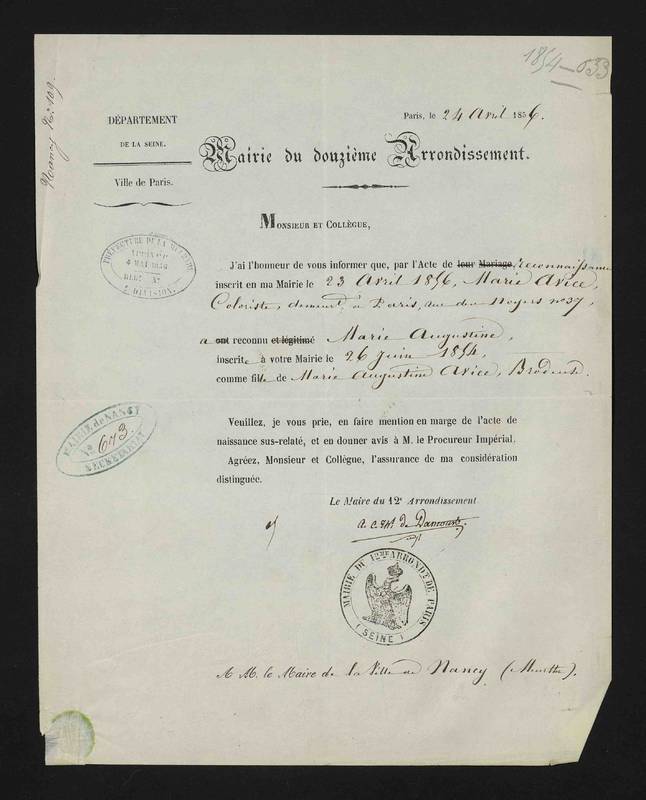 1854—633
Nancy N° 109.
DÉPARTEMENT
DE LA SEINE.
Ville de Paris.
Paris, le 24 Avril 1856.
Mairie du douzième Arrondissement.
MONSIEUR ET COLLÈGUE,
PRÉFECTURE DE LA MEURTHE
ARRIVÉE
4 MAI 1856
2e DIVISION.
J'ai l'honneur de vous informer que, par l'Acte de leur Mariage, reconnaissance
inscrit en ma Mairie le 23 avril 1856, Marie Avice,
Coloriste, demeurt à Paris, rue des Noyers n° 37,
a ont reconnu et légitimé Marie Augustine,
inscrite à votre Mairie le 26 Juin 1854,
comme fille de Marie Augustine Avice, Brodeuse.
MAIRIE de NANCY
N° 673.
SECRETARIAT
Veuillez, je vous prie, en faire mention en marge de l'acte de
naissance sus-relaté, et en donner avis à M. le Procureur Impérial.
Agréez, Monsieur et Collègue, l'assurance de ma considération
distinguée.
Le Maire du 12e Arrondissement
MAIRIE DU 12ME ARRONDT DE PARIS
(SEINE)
A M. le Maire de la Ville de Nancy (Meurthe).